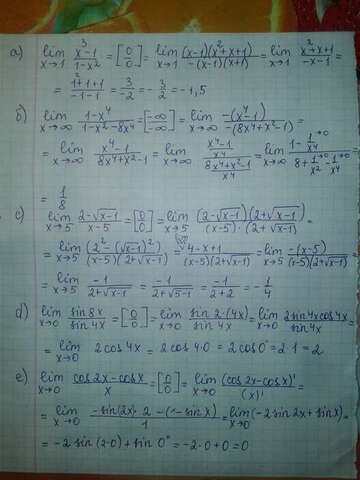 a) lim x→1 (x³-1)/(1-x²) = [0/0] = lim x→1 (x-1)(x²+x+1)/(-(x-1)(x+1)) = lim x→1 (x²+x+1)/(-x-1) =
= (1²+1+1)/(-1-1) = 3/-2 = -3/2 = -1,5
б) lim x→∞ (1-x⁴)/(1-x²-8x⁴) = [-∞/-∞] = lim x→∞ -(x⁴-1)/(-(8x⁴+x²-1)) =
= lim x→∞ (x⁴-1)/(8x⁴+x²-1) = lim x→∞ ((x⁴-1)/x⁴)/((8x⁴+x²-1)/x⁴) = lim x→∞ (1-1/x⁴→0)/(8+1/x²→0-1/x⁴→0) =
= 1/8
c) lim x→5 (2-√(x-1))/(x-5) = [0/0] = lim x→5 (2-√(x-1))(2+√(x-1))/((x-5)·(2+√(x-1))) =
= lim x→5 (2²-(√(x-1))²)/((x-5)(2+√(x-1))) = (4-x+1)/((x-5)(2+√(x-1))) = lim x→5 -(x-5)/((x-5)(2+√(x-1))) =
= lim x→5 -1/(2+√(x-1)) = -1/(2+√(5-1)) = -1/(2+2) = -1/4
d) lim x→0 sin8x/sin4x = [0/0] = lim x→0 sin2·(4x)/sin4x = lim x→0 2sin4xcos4x/sin4x =
= lim x→0 2cos4x = 2cos4·0 = 2cos0° = 2·1 = 2
e) lim x→0 (cos2x-cosx)/x = [0/0] = lim x→0 (cos2x-cosx)'/(x)' =
= lim x→0 (-sin(2x)·2-(-sinx))/1 = lim x→0 (-2sin2x+sinx) =
= -2sin(2·0)+sin0° = -2·0+0 = 0